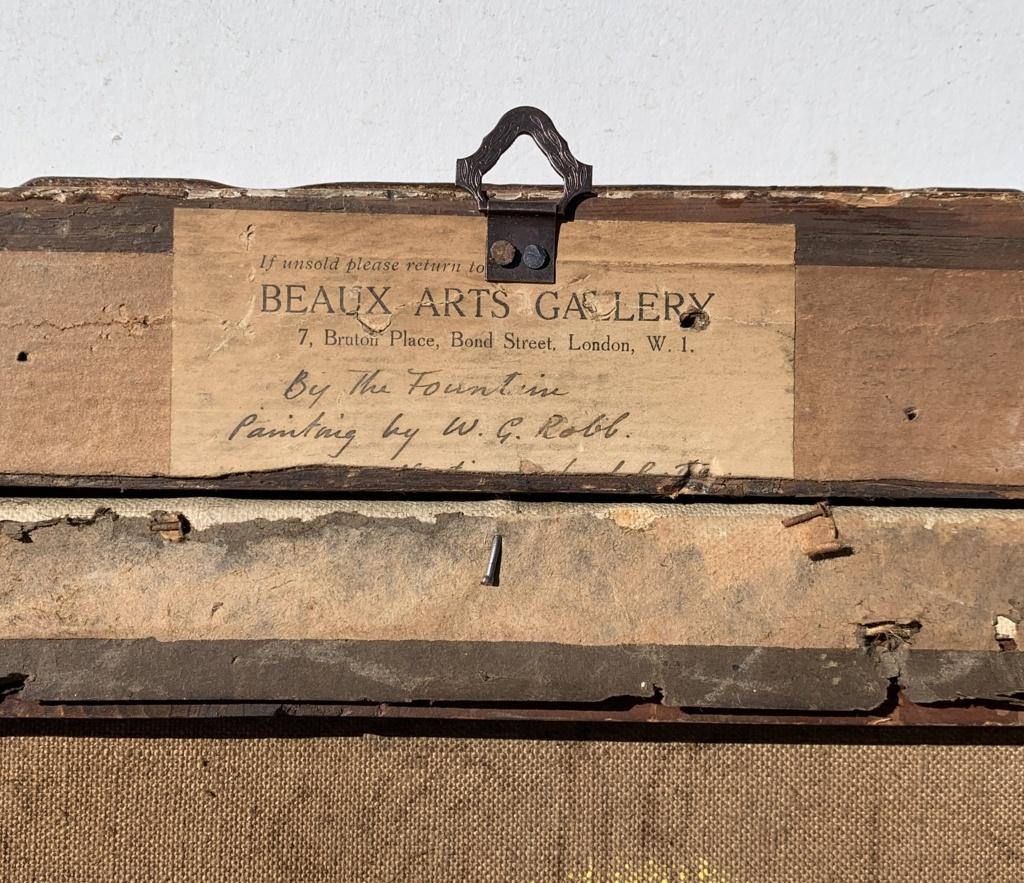 If unsold please return to
BEAUX ARTS GALLERY
7, Bruton Place, Bond Street, London, W. 1.
By The Fountain
Painting by W. G. Robb.